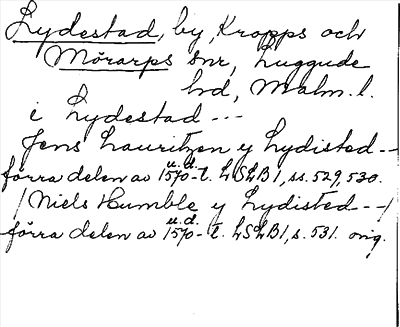 Lydestad, by, Kropps och
Mörarps snr, Luggude
hd, Malm. l.
i Lydestad ---
Jens Lauritzen y Lydisted --
förra delen av u.d. 1570-t. LSLB1, ss. 529, 530.
/Niels Humble y Lydisted --/
förra delen av u.d. 1570-t. LSLB1, s. 531. orig.